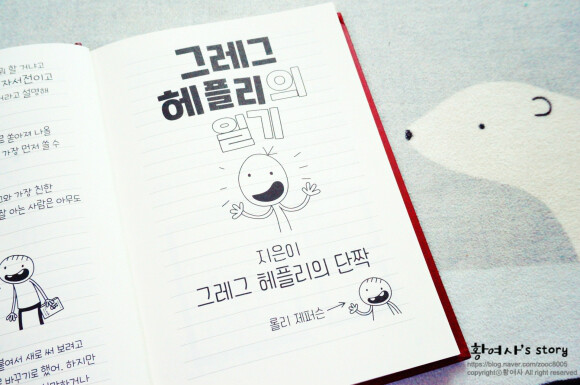 할 거냐고
자서전이고
라고 설명해
쏟아져 나올
가장 먼저 쓸 수
와 가장 친한
잘 아는 사람은 아무도
붙여서 새로 써 보려고
바꾸기로 했어. 하지만
그레그
헤플리의
일기
지은이
그레그 헤플리의 단짝
롤리 제퍼슨
황여사's story
https://blog.naver.com/zooc8005
copyrightⓒ황여사 All right reserved.